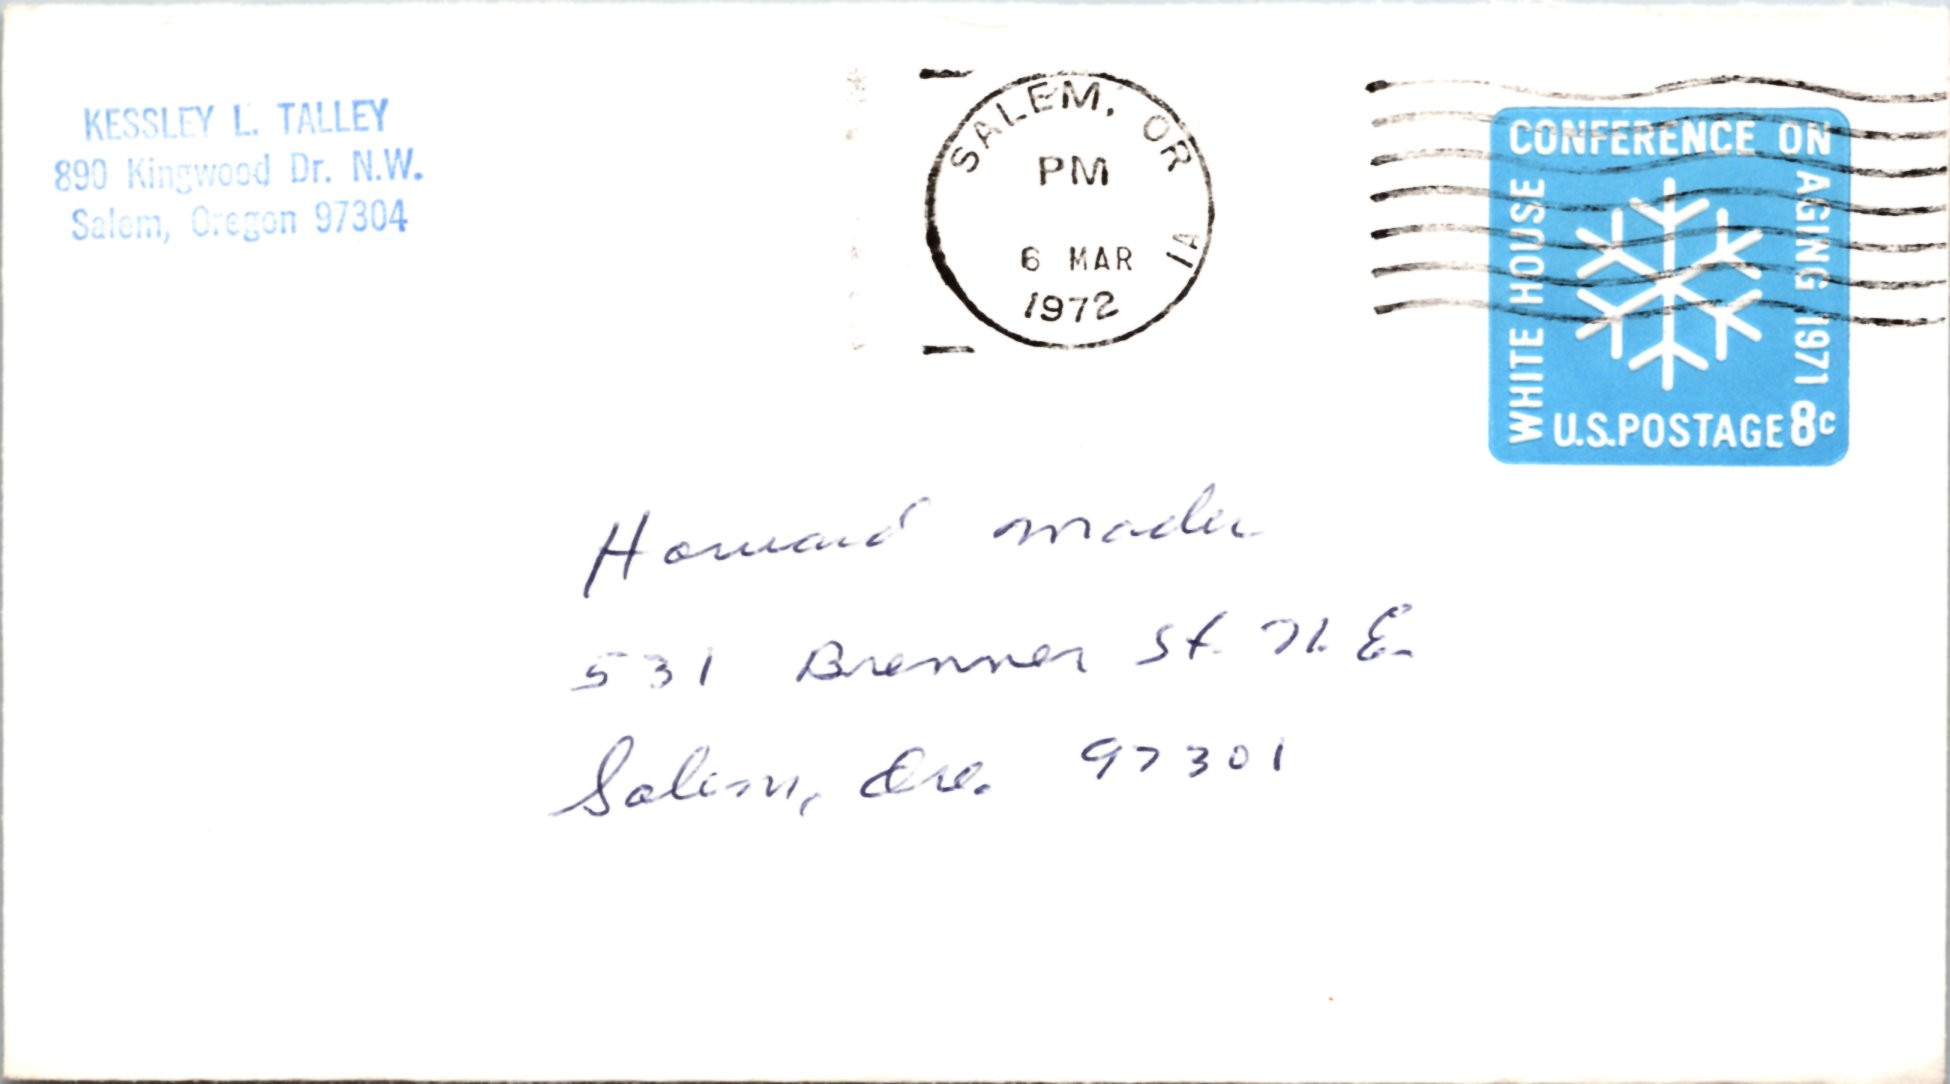 KESSLEY L. TALLEY
890 Kingwood Dr. N.W.
Salem, Oregon 97304
SALEM, OR
PM
6 MAR
1972
1A
CONFERENCE ON
AGING 1971
WHITE HOUSE
U.S. POSTAGE 8c
Howard Mader
531 Brenner St. N.E.
Salem, Ore. 97301